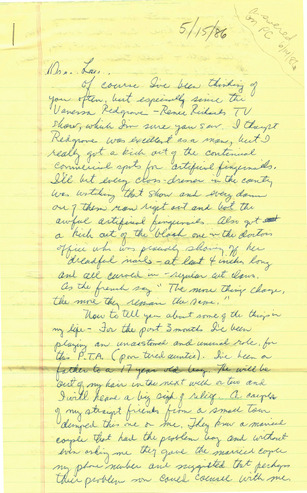 5/15/86
Answered
on PC
Dr. Lou..
Of course I've been thinking of
you often, but especially since the
Vanessa Redgrave - Renee Richards TV
show, which I'm sure you saw. I thought
Redgrave was excellent as a man, but I
really got a kick out of the continual
commercial spots for artificial fingernails.
I'll bet every cross-dresser in the country
was watching that show and every damn
one of them raced right out and bot the
awful artificial fingernails. Also got
a kick out of the black one in the doctors
office who was proudly showing off her
dreadful nails - at least 4 inches long
and all curved in - regular cat claws.
As the french say "The more things change,
the more they remain the same."
Now to tell you about some of the things in
my life - For the past 3 months I've been
playing an unaccustomed and unusual role, for
this P.T.A. (poor tired auntie). I've been a
father to a 17 year old boy. He will be
out of my hair in the next week or two and
I will heave a big sigh of relief. A couple
of my straight friends from a small town
dumped this one on me. They knew a married
couple that had the problem boy and without
even asking me they gave the married couple
my phone number and suggested that perhaps
their problem son could counsel with me.